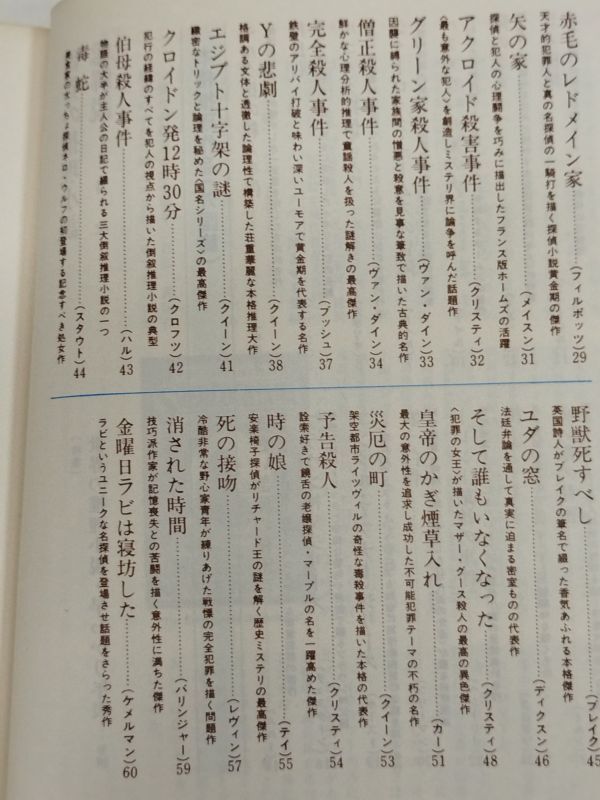 赤毛のレドメイン家……(フィルポッツ)29
天才的犯罪人と真の名探偵の一騎打を描く探偵小説黄金期の傑作
矢の家……(メイスン)31
探偵と犯人の心理闘争を巧みに描出したフランス版ホームズの活躍
アクロイド殺害事件……(クリスティ)32
〈最も意外な犯人〉を創造しミステリ界に論争を呼んだ話題作
グリーン家殺人事件……(ヴァン・ダイン)33
因襲に縛られた家族間の憎悪と殺意を見事な筆致で描いた古典的名作
僧正殺人事件……(ヴァン・ダイン)34
鮮かな心理分析的推理で童謡殺人を扱った謎解きの最高傑作
完全殺人事件……(ブッシュ)37
鉄壁のアリバイ打破と味わい深いユーモアで黄金期を代表する名作
Yの悲劇……(クイーン)38
格調ある文体と透徹した論理性で構築した荘重華麗な本格推理大作
エジプト十字架の謎……(クイーン)41
緻密なトリックと論理を秘めた〈国名シリーズ〉の最高傑作
クロイドン発12時30分……(クロフツ)42
犯行の経緯のすべてを犯人の視点から描いた倒叙推理小説の典型
伯母殺人事件……(ハル)43
物語の大半が主人公の日記で綴られる三大倒叙推理小説の一つ
毒蛇……(スタウト)44
探偵ネロ・ウルフの初登場する記念すべき処女作
野獣死すべし……(ブレイク)45
英国詩人がブレイクの筆名で綴った香気あふれる本格傑作
ユダの窓……(ディクスン)46
法廷弁論を通して真実に迫まる密室ものの代表作
そして誰もいなくなった……(クリスティ)48
〈犯罪の女王〉が描いたマザー・グース殺人の最高の異色傑作
皇帝のかぎ煙草入れ……(カー)51
最大の意外性を追求し成功した不可能犯罪テーマの不朽の名作
災厄の町……(クイーン)53
架空都市ライツヴィルの奇怪な毒殺事件を描いた本格の代表作
予告殺人……(クリスティ)54
詮索好きで饒舌の老嬢探偵・マープルの名を一躍高めた傑作
時の娘……(テイ)55
安楽椅子探偵がリチャード王の謎を解く歴史ミステリの最高傑作
死の接吻……(レヴィン)57
冷酷非常な野心家青年が練りあげた戦慄の完全犯罪を描く問題作
消された時間……(バリンジャー)59
技巧派作家が記憶喪失との苦闘を描く意外性に満ちた傑作
金曜日ラビは寝坊した……(ケメルマン)60
ラビというユニークな名探偵を登場させ話題をさらった秀作